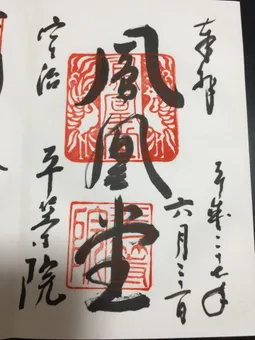 奉拝
平成二十七年
六月
鳳凰堂
宇治
平等院